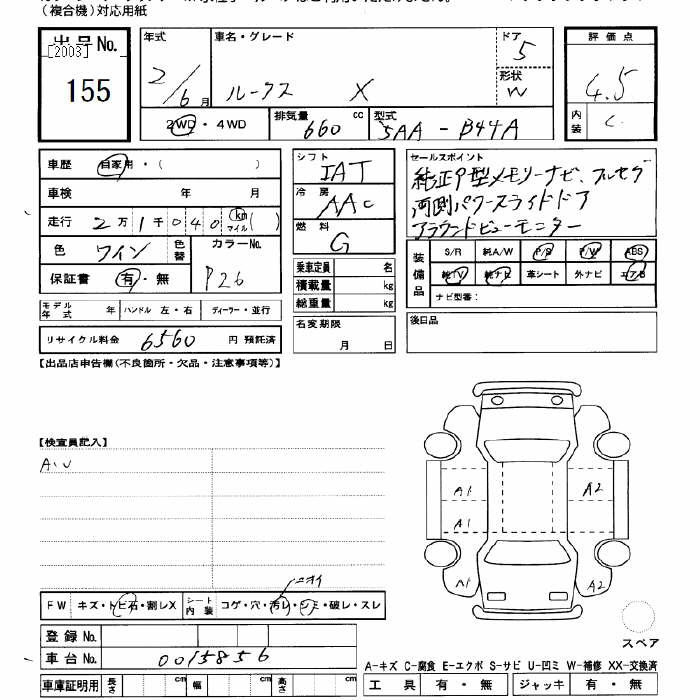 (複合機)対応用紙
出品No.
[2003]
155
年式
2/6月
車名・グレード
ルークス X
ドア
5
形状
W
評価点
4.5
内装
C
2WD・4WD
排気量 660 cc
型式 5AA - B44A
車歴 自家用・( )
車検 年 月
走行 2万1千040 km マイル ( )
色 ワイン 色替
カラーNo.
P26
保証書 有・無
シフト
IAT
冷房
AAC
燃料
G
セールスポイント
純正9型メモリーナビ、フルセグ
両側パワースライドドア
アラウンドビューモニター
装備品
S/R 純A/W P/S P/W ABS
純TV 純ナビ 革シート 外ナビ エアB
ナビ型番:
乗車定員 名
積載量 kg
総重量 kg
モデル年式 年 ハンドル 左・右 ディーラー・並行
リサイクル料金 6560 円 預託済
名変期限
月 日
後日品
【出品店申告欄(不良箇所・欠品・注意事項等)】
【検査員記入】
A、U
A1
A1
A2
A1
A2
ニオイ
FW キズ・トビ石・割レX
シート内装 コゲ・穴・汚レ・シミ・破レ・スレ
登録No.
車台No. 0015856
車庫証明用 長さ cm 幅 cm 高さ cm
スペア
A-キズ C-腐食 E-エクボ S-サビ U-凹ミ W-補修 XX-交換済
工具 有・無 ジャッキ 有・無